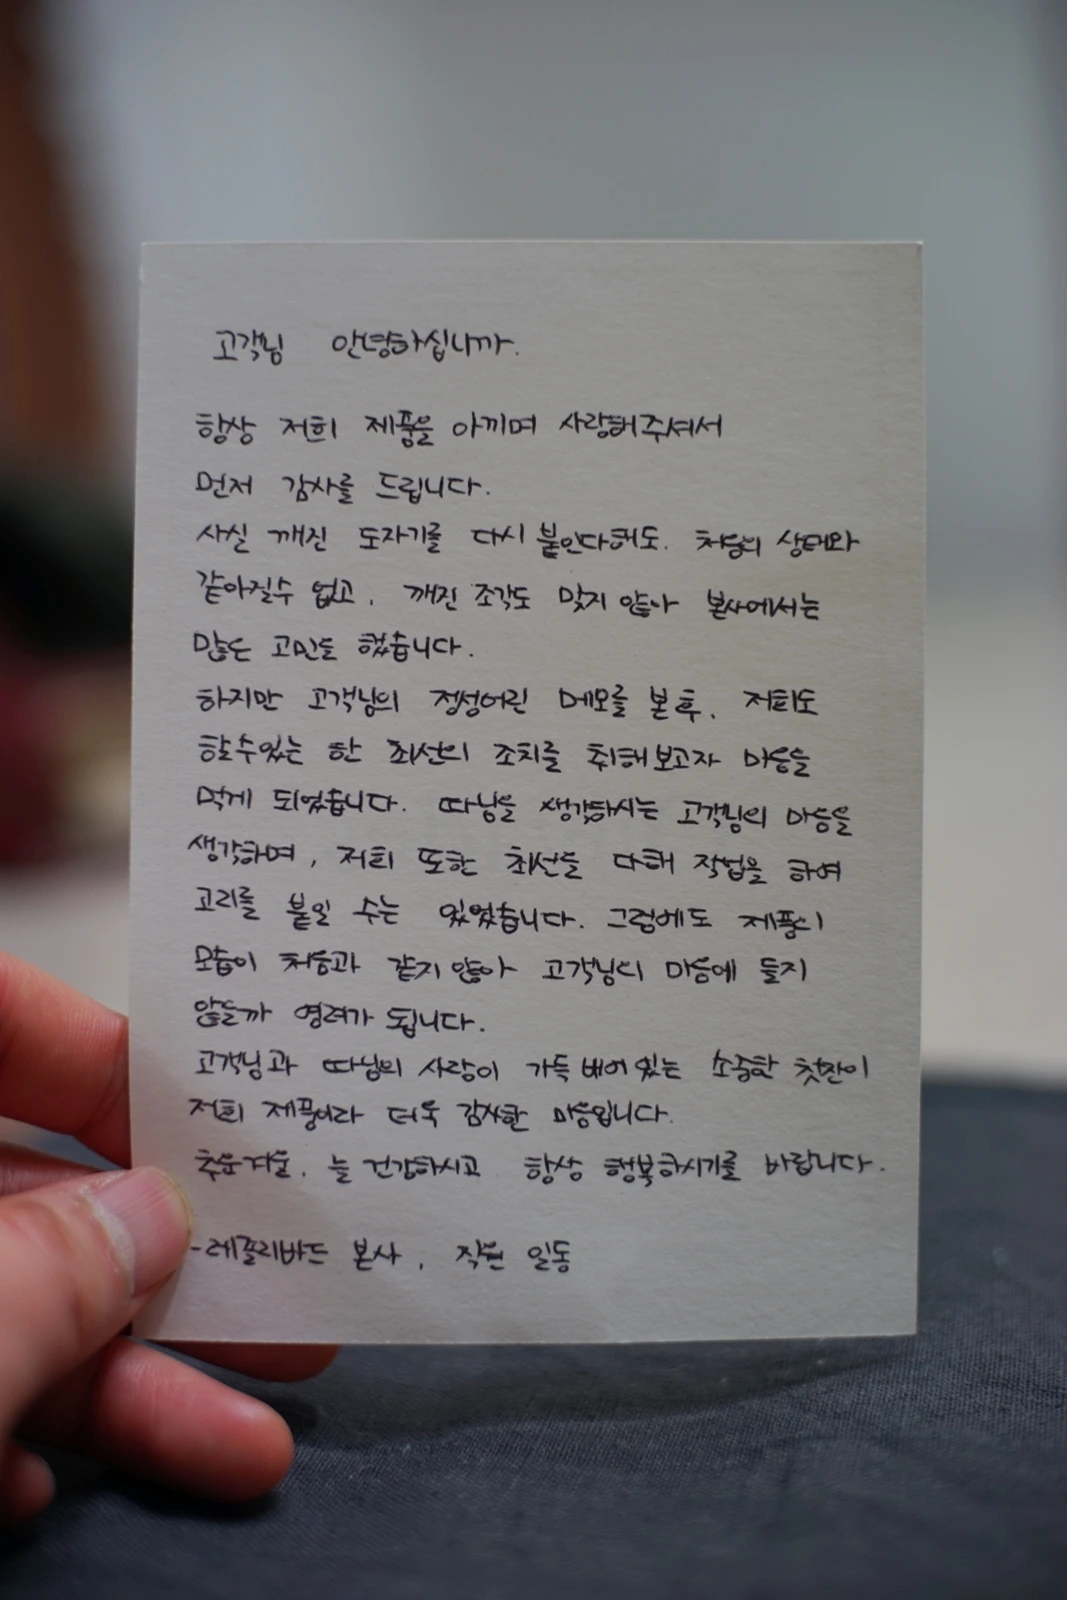 고객님 안녕하십니까.
항상 저희 제품을 아끼며 사랑해주셔서
먼저 감사를 드립니다.
사실 깨진 도자기를 다시 붙인다해도. 처음의 상태와
같아질수 없고, 깨진 조각도 맞지 않아 본사에서는
많은 고민을 했습니다.
하지만 고객님의 정성어린 메모를 본 후, 저희도
할수있는 한 최선의 조치를 취해보고자 마음을
먹게 되었습니다. 따님을 생각하시는 고객님의 마음을
생각하며, 저희 또한 최선을 다해 작업을 하여
고리를 붙일 수는 있었습니다. 그럼에도 제품의
모습이 처음과 같지 않아 고객님의 마음에 들지
않을까 염려가 됩니다.
고객님과 따님의 사랑이 가득 배어있는 소중한 찻잔이
저희 제품이라 더욱 감사한 마음입니다.
추운겨울, 늘 건강하시고 항상 행복하시기를 바랍니다.
-레플리바드 본사, 직원 일동